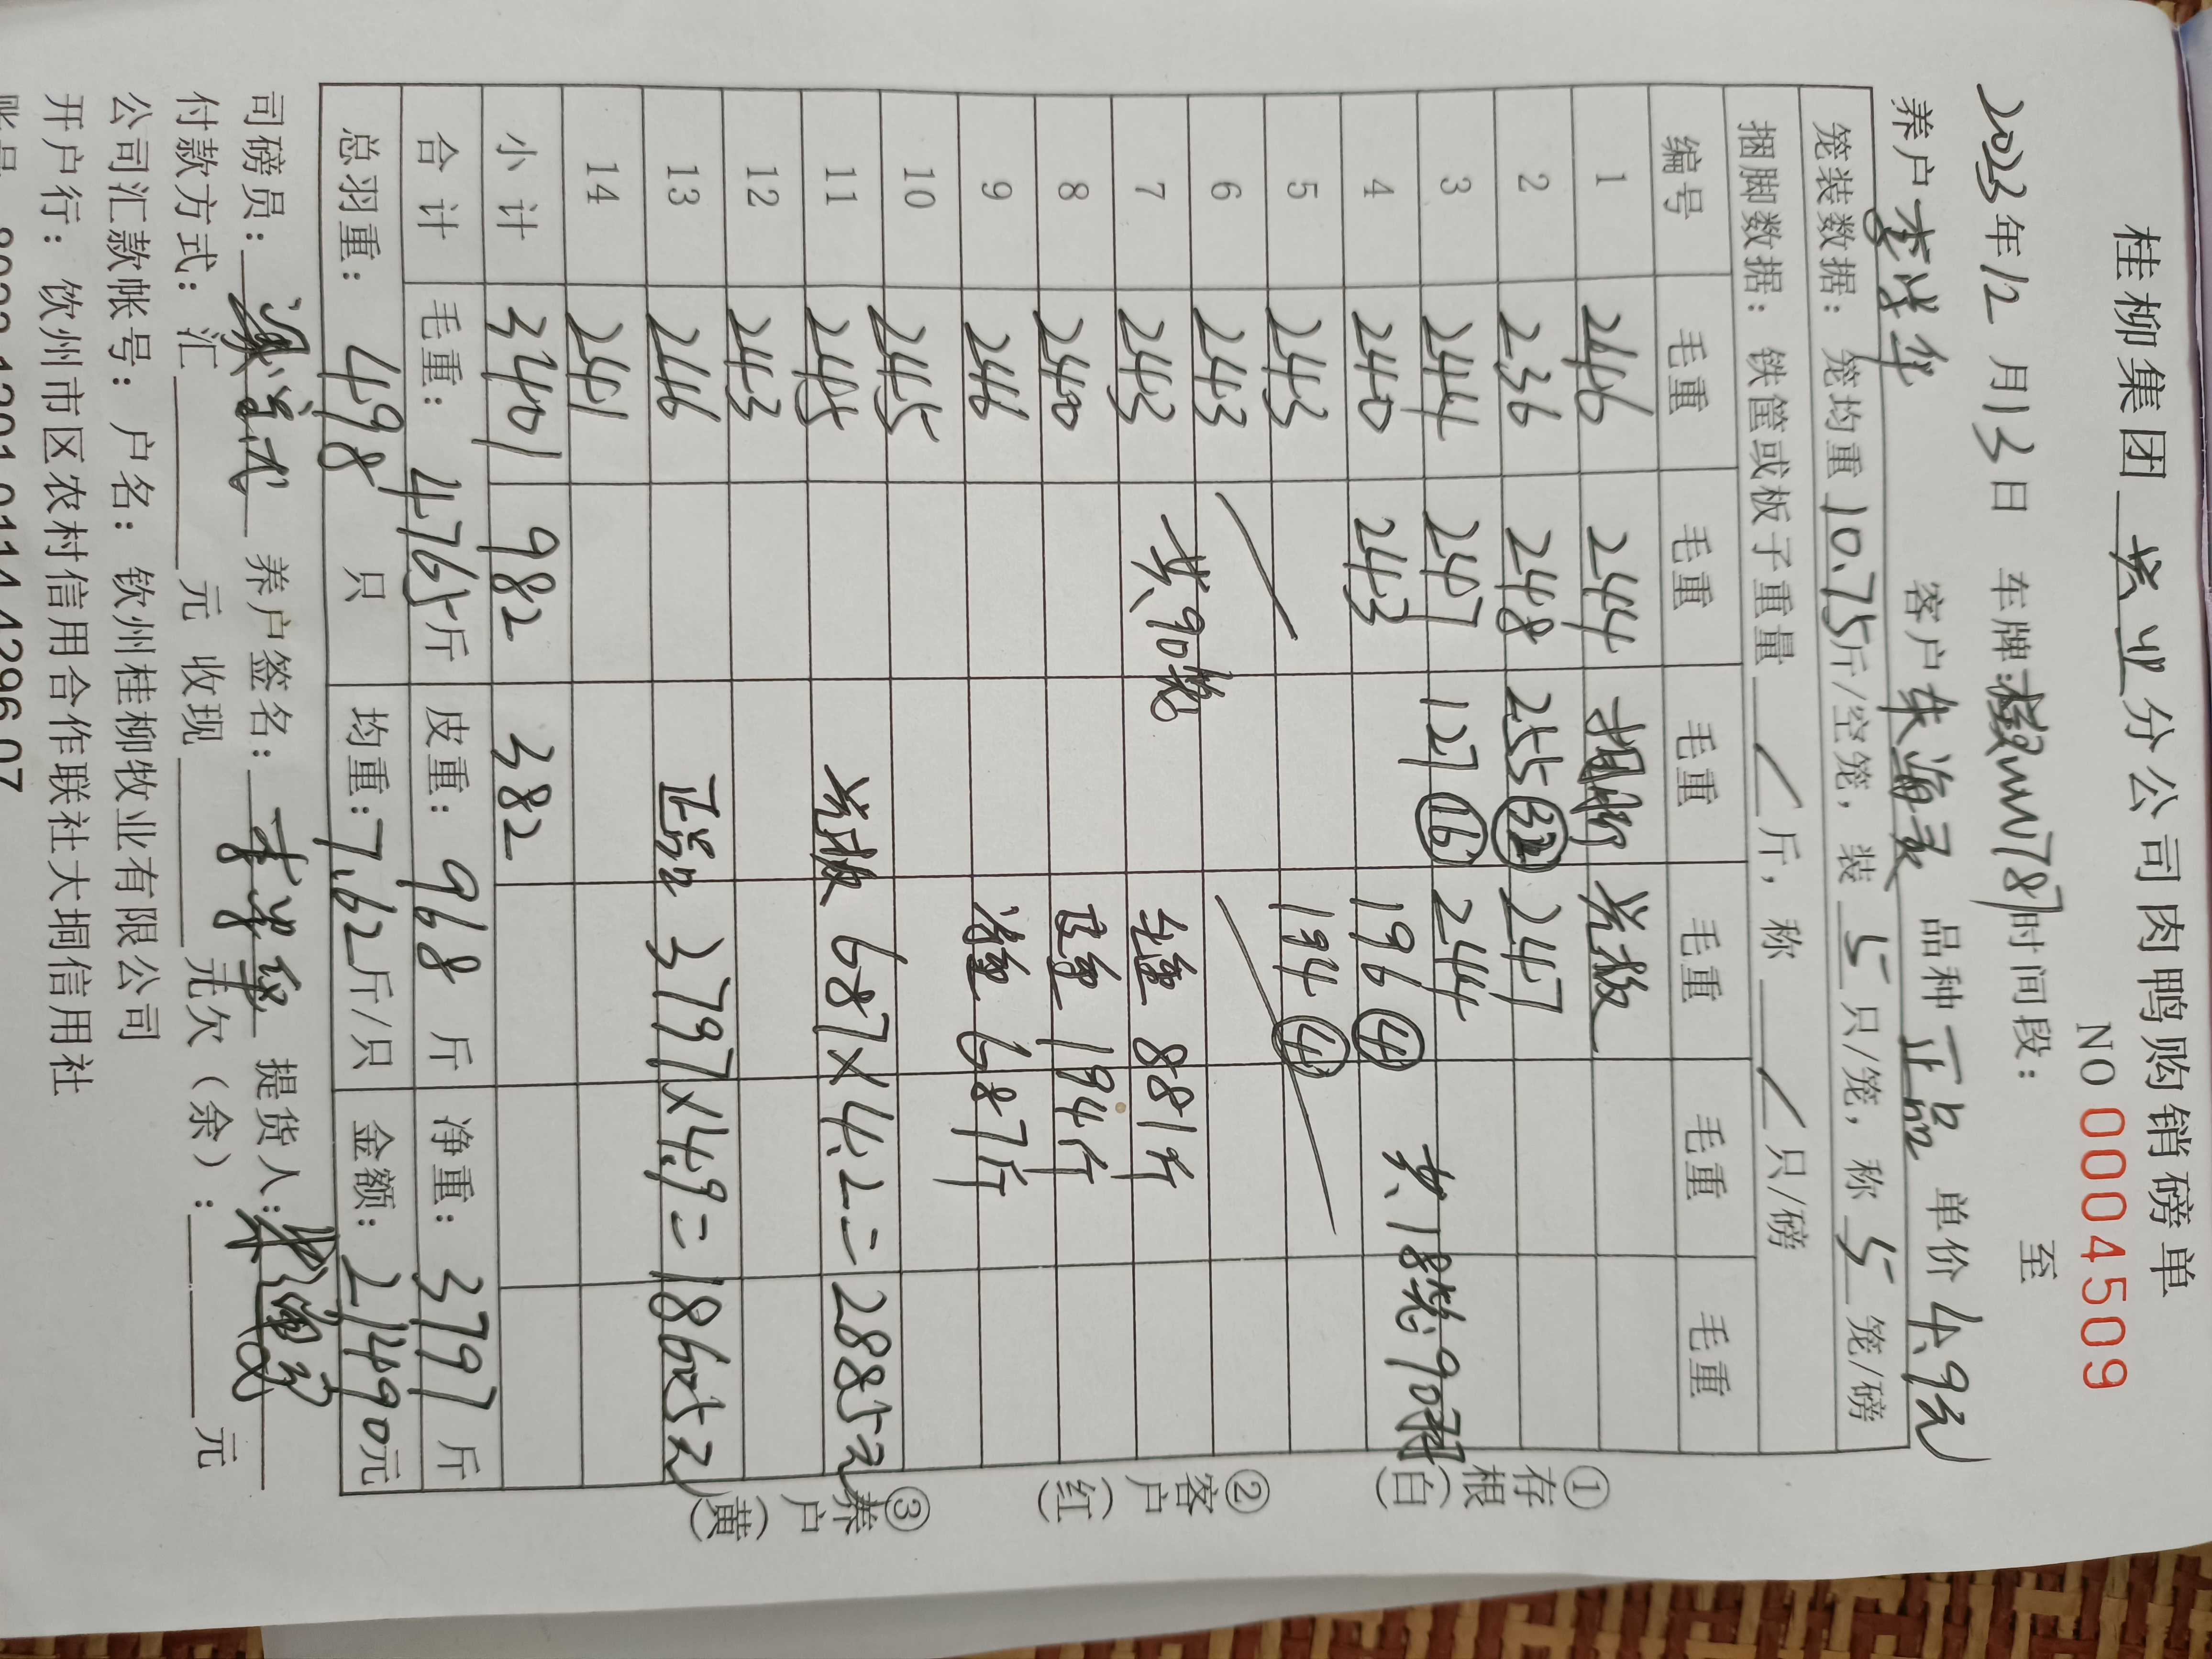 桂柳集团 兴业 分公司肉鸭购销磅单
NO 0004509
2023年12月13日 车牌: 时间段: 至
养户 李 华 客户 朱海 品种 正品 单价 4.9元
笼装数据: 笼均重 10.75 斤/空笼, 装 5 只/笼, 称 5 笼/磅
捆脚数据: 铁筐或板子重量 / 斤, 称 / 只/磅
编号 毛重 毛重 毛重 毛重 毛重 毛重
1 246 244 捆脚 光板
2 236 248 255 32 247
3 244 247 127 16 244
4 240 243 196 4 共18笼90羽
5 243 194 4
6 243
7 243 共90笼 毛重 881斤
8 240 皮重 194斤
9 246 净重 687斤
10 245
11 245 光板 687×4.2=2885元
12 243
13 246 正品 3797×4.9=18605元
14 241
小计 3401 982 382
合计 毛重: 4765斤 皮重: 968 斤 净重: 3797 斤
总羽重: 498 只 均重: 7.62斤/只 金额: 21490元
司磅员: 养户签名: 李 华 提货人:
付款方式: 汇 元 收现 元欠(余): 元
公司汇款帐号: 户名: 钦州桂柳牧业有限公司
开户行: 钦州市区农村信用合作联社大垌信用社
①存根(白)
②客户(红)
③养户(黄)